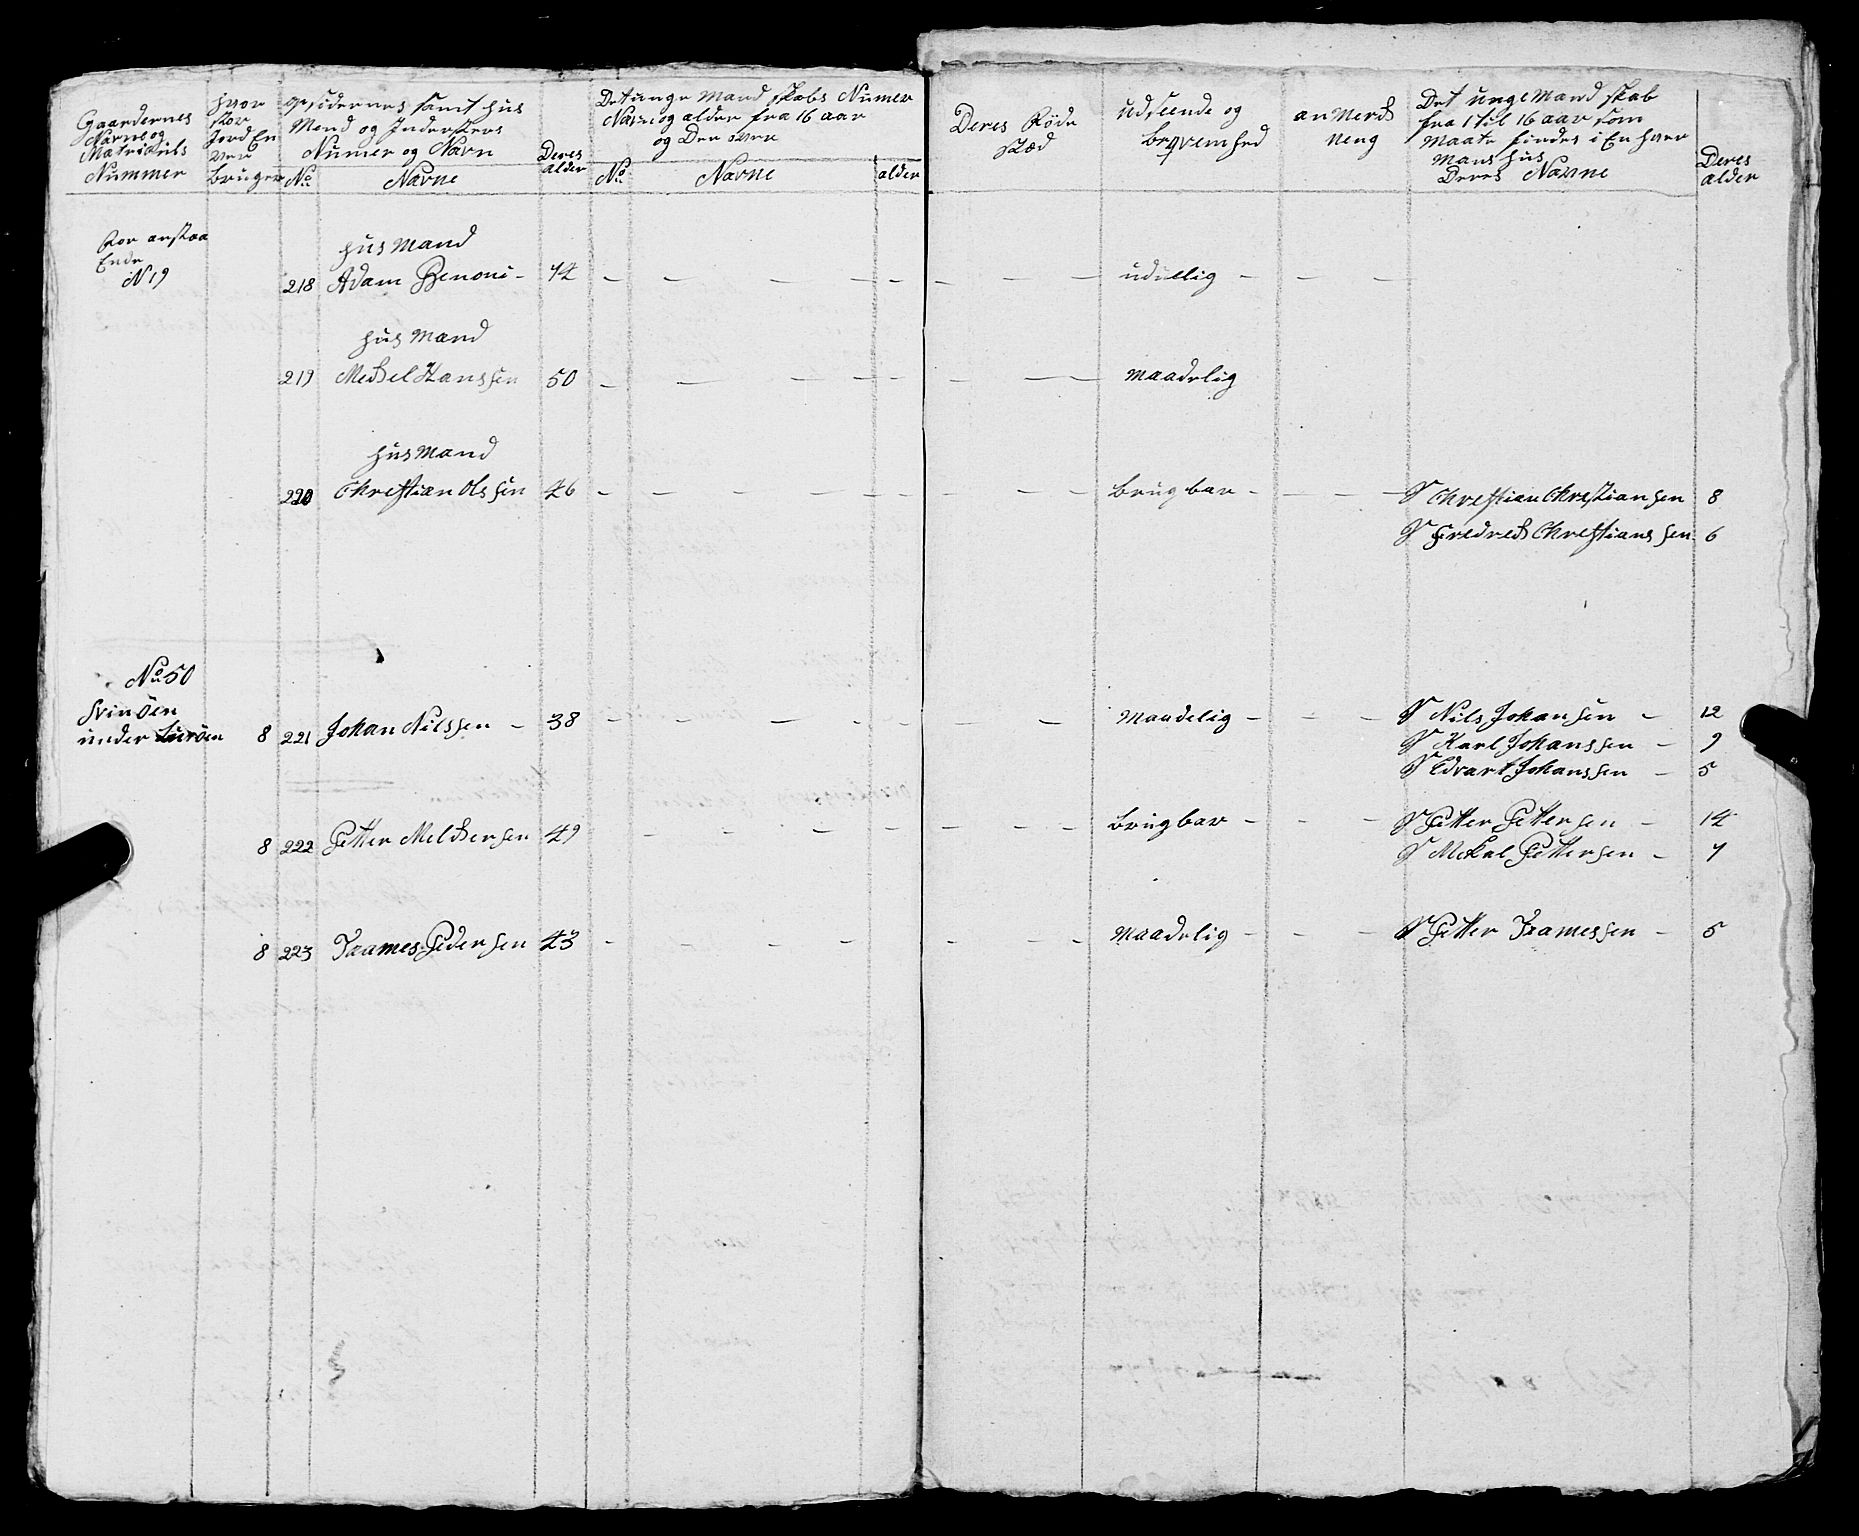 Gaardernes
Navne og
Matrikuls
Nummer
hvor
stor
Jord En
ver
bruger
opsidernes samt hus
Mend og Indersters
Numer og Navn
No
Navne
Deres
alder
Det unge Mand skabs Numer
Navne og alder fra 16 aar
og Der over
No
Navne
alder
Deres Røde
stæd
udseende og
beqvemhed
an Merch
neng
Det unge Mand skab
fra 1 til 16 aar som
Maate findes i En hver
Mans hus
Deres Navne
Deres
alder
For anstaa
Ende
N 19
hus Mand
218 Adam Benoni - 74 - - - - - - - - udullig - - -
hus Mand
219 Mechel Hanssen 50 - - - - - - - Maadelig
hus Mand
220 Christian Olssen 46 - - - - - - - - brugbar - - - S Christian Christiansen 8
S Fredrech Christianssen 6
No 50
Svinöen
under Luröen 8 221 Johan Nilssen - 38 - - - - - - - Maadelig - - - S Nils Johansen - 12
S Karl Johanssen - 9
S Edvart Johanssen - 5
8 222 Petter Melchersen 49 - - - - - - - brugbar - - - S Petter Pettersen - 14
S Mekal Pettersen - 7
8 223 Tramis Pedersen 43 - - - - - - - Maadelig - - - S Petter Tramessen - 5